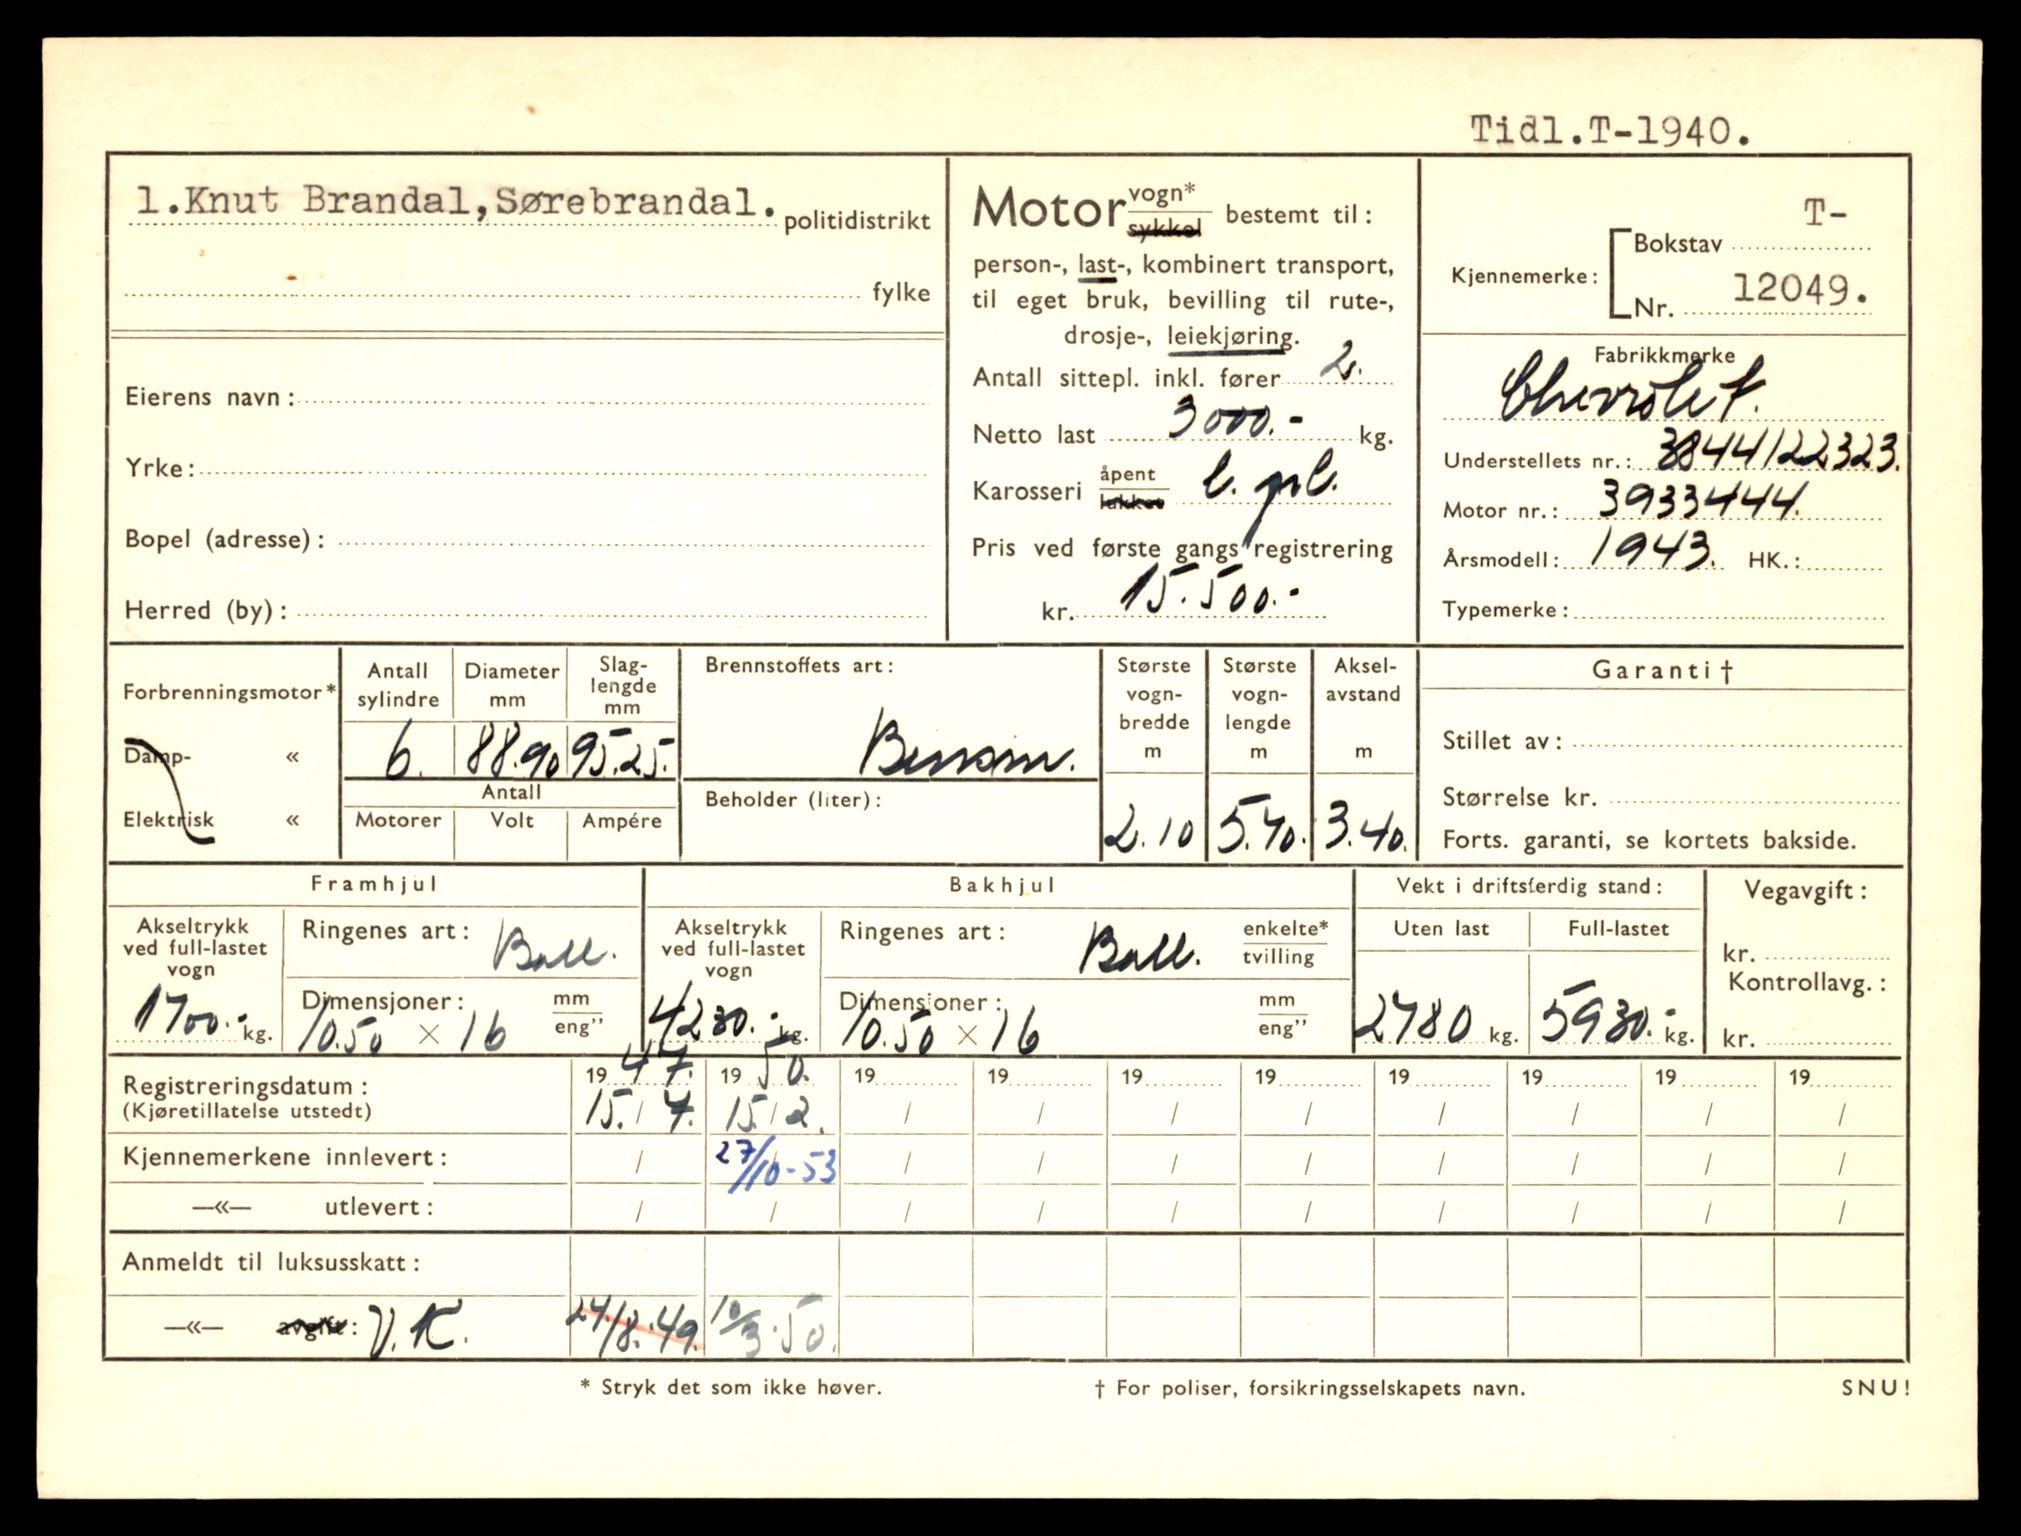 Tidl.T-1940.
1.Knut Brandal,Sørebrandal. politidistrikt
fylke
Eierens navn:
Yrke:
Bopel (adresse):
Herred (by):
Motor vogn* sykkel bestemt til:
person-, last-, kombinert transport,
til eget bruk, bevilling til rute-,
drosje-, leiekjøring.
Antall sittepl. inkl. fører 2.
Netto last 3000.- kg.
Karosseri åpent lukket l. pl.
Pris ved første gangs registrering
kr. 15.500.-
Kjennemerke: Bokstav T-
Nr. 12049.
Fabrikkmerke
Chevrolet.
Understellets nr.: 3844122323.
Motor nr.: 3933444.
Årsmodell: 1943. HK.:
Typemerke:
Forbrenningsmotor*
Damp- «
Elektrisk «
Antall sylindre
6.
Diameter mm
88.90
Slag-lengde mm
95.25.
Antall
Motorer Volt Ampére
Brennstoffets art:
Bensin.
Beholder (liter):
Største vogn-bredde m
2.10
Største vogn-lengde m
5.70.
Aksel-avstand m
3.40.
Garanti †
Stillet av:
Størrelse kr.
Forts. garanti, se kortets bakside.
Framhjul
Akseltrykk ved full-lastet vogn
1700.- kg.
Ringenes art: Ball.
Dimensjoner: mm eng”
10.50 × 16
Bakhjul
Akseltrykk ved full-lastet vogn
4230.- kg.
Ringenes art: Ball. enkelte* tvilling
Dimensjoner: mm eng”
10.50 × 16
Vekt i driftsferdig stand:
Uten last Full-lastet
2780 kg. 5930.- kg.
Vegavgift:
kr.
Kontrollavg.:
kr.
Registreringsdatum: 19 47. 19 50. 19 19 19 19 19 19 19 19
(Kjøretillatelse utstedt) 15. / 7. 15. / 2. / / / / / / / /
Kjennemerkene innlevert: / 27/10-53 / / / / / / / /
—«— utlevert: / / / / / / / / / /
Anmeldt til luksusskatt:
—«— avgift: V.K. 24/8.49. 10/3.50.
* Stryk det som ikke høver. † For poliser, forsikringsselskapets navn. SNU!